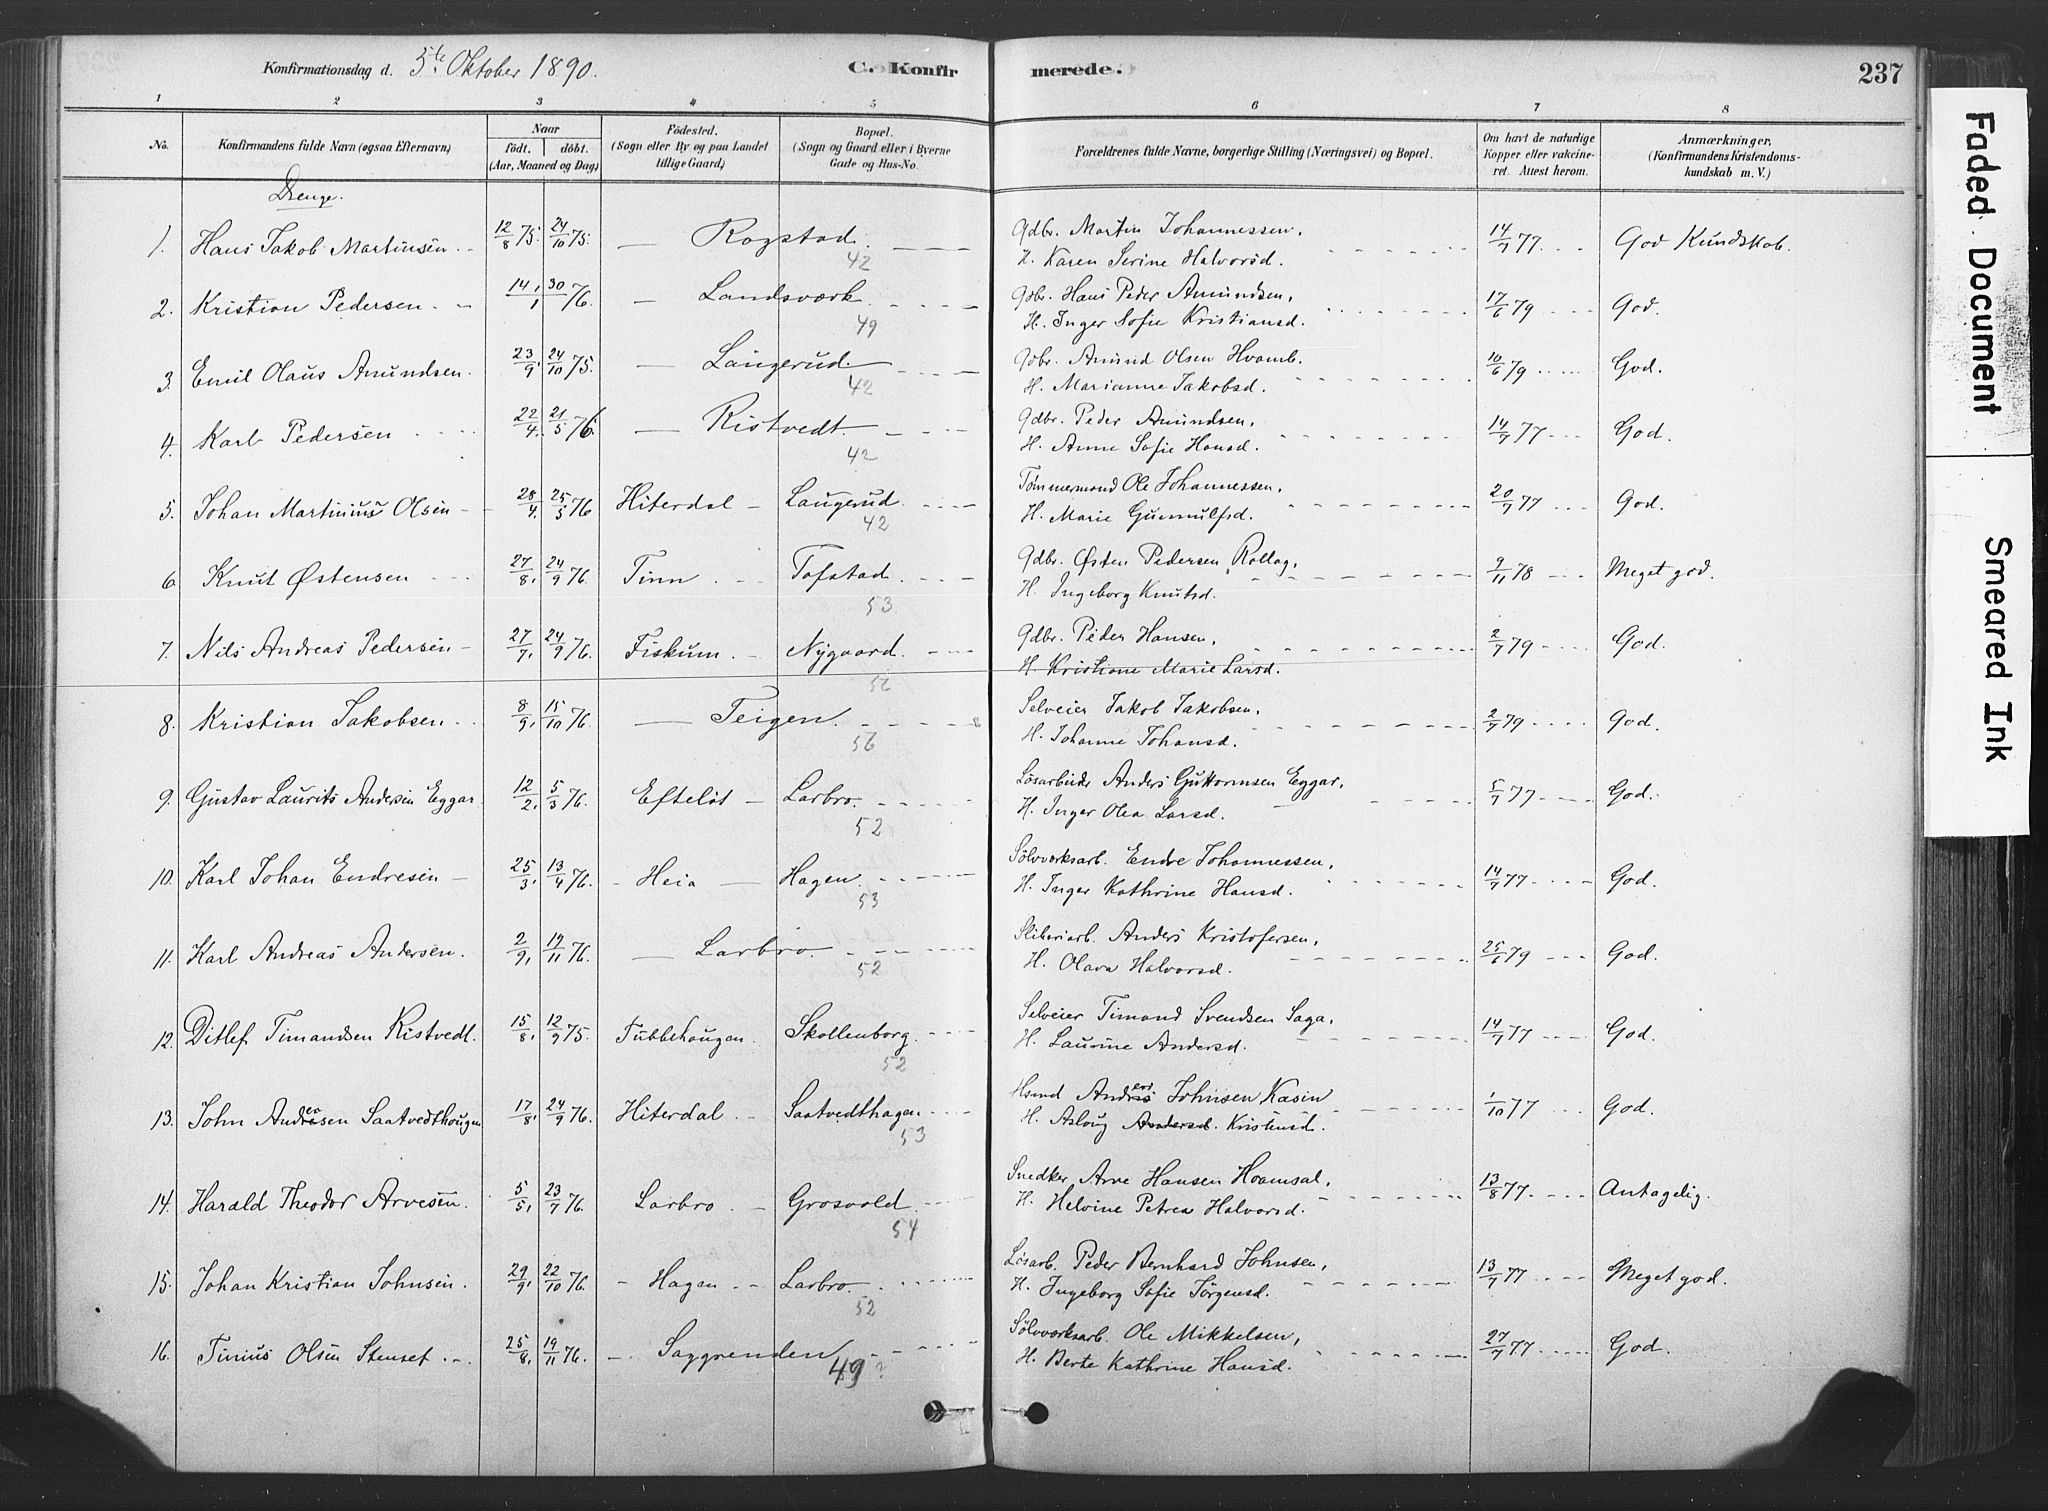 Konfirmationsdag d. 5te Oktober 1890. C. Konfirmerede. 237
1 2 3 4 5 6 7 8
No. Konfirmandens fulde Navn (ogsaa Efternavn) Naar födt. döbt. (Aar, Maaned og Dag) Födested. (Sogn eller By og paa Landet tillige Gaard) Bopæl. (Sogn og Gaard eller i Byerne Gade og Hus-No. Forældrenes fulde Navne, borgerlige Stilling (Næringsvei) og Bopæl. Om havt de naturlige Kopper eller vakcineret. Attest herom. Anmærkninger, (Konfirmandens Kristendomskundskab m. V.)
Drenge.
1. Hans Jakob Martinsen 12/8 75. 24/10 75. — Rogstad. 42 Gdbr. Martin Johannessen, 14/7 77 God Kundskab.
H. Karen Serine Halvorsd.
2. Kristian Pedersen 14/1 30/ 76. — Landsværk. 49 Gdbr. Hans Peder Amundsen, 17/6 79 God.
H. Inger Sofie Kristiansd.
3. Emil Olaus Amundsen. 23/9 24/10 75. — Langerud 42 Gdbr. Amund Olsen Hvamb. 10/6 79 God.
H. Marianne Jakobsd.
4. Karl Pedersen 22/4 21/5 76. — Ristvedt. 42 Gdbr. Peder Amundsen, 14/7 77 God.
H. Anne Sofie Hansd.
5. Johan Martinius Olsen 28/4. 25/5 76 Hiterdal — Langerud. 42 Tømmermand Ole Johannessen, 20/7 77 God.
H. Marie Gunnulfsd.
6. Knut Østensen 27/8, 24/9 76. Tinn Tofstad. 53. Gdbr. Østen Pedersen, Rollag, 9/11 78 Meget god.
H. Ingeborg Knutsd.
7. Nils Andreas Pedersen 27/7, 24/9 76. Fiskum. Nygaard. 56 Gdbr. Peder Hansen, 2/7 79 God.
H. Kristiane Marie Larsd.
8. Kristian Jakobsen 8/9, 15/10 76. — Teigen. 56 Selveier Jakob Jakobsen, 2/7 79 God.
H. Johanne Johansd.
9. Gustav Laurits Andersen Eggar 12/2, 5/3 76. Efteløt — Larbro. 52 Løsarbeider Anders Guttormsen Eggar, 5/7 77 God.
H. Inger Olea Larsd.
10. Karl Johan Endresen 25/3, 13/4 76. Heia — Hagen. 53 Sølvværksarb. Endre Johannessen, 14/7 77 God.
H. Inger Kathrine Hansd.
11. Karl Andreas Andersen. 2/9, 19/11 76. — Larbro. 52 Sliberiarb. Anders Kristofersen, 25/6 79 God.
H. Olava Halvorsd.
12. Ditlef Timandsen Ristvedt. 15/8, 12/9 75. Tubbehaugen Skollenborg. 52 Selveier Timand Svendsen Saga, 14/7 77 God.
H. Laurine Andersd.
13. John Andersen Saatvedthougen 17/8, 24/9 76. Hiterdal Saatvedthagen 53 Hsmd Anders Johnsen Kasin 1/10 77 God.
H. Aslaug Andersd. Kristensd.
14. Harald Theodor Arvesen. 5/5, 23/7 76. Larbro. Grosvold. 54 Snedker Arve Hansen Hvamsal, 13/8 77 Antagelig.
H. Helvine Petrea Halvorsd.
15. Johan Kristian Johnsen. 29/9, 22/10 76. Hagen Larbro. 52 Løsarb. Peder Bernhard Johnsen, 13/7 77 Meget god.
H. Ingeborg Sofie Jørgensd.
16. Tinius Olsen Stenset 25/8, 19/11 76. Saggrenden 49? Sølvværksarb. Ole Mikkelsen, 27/7 77 God.
H. Berte Kathrine Hansd.
Faded Document
Smeared Ink